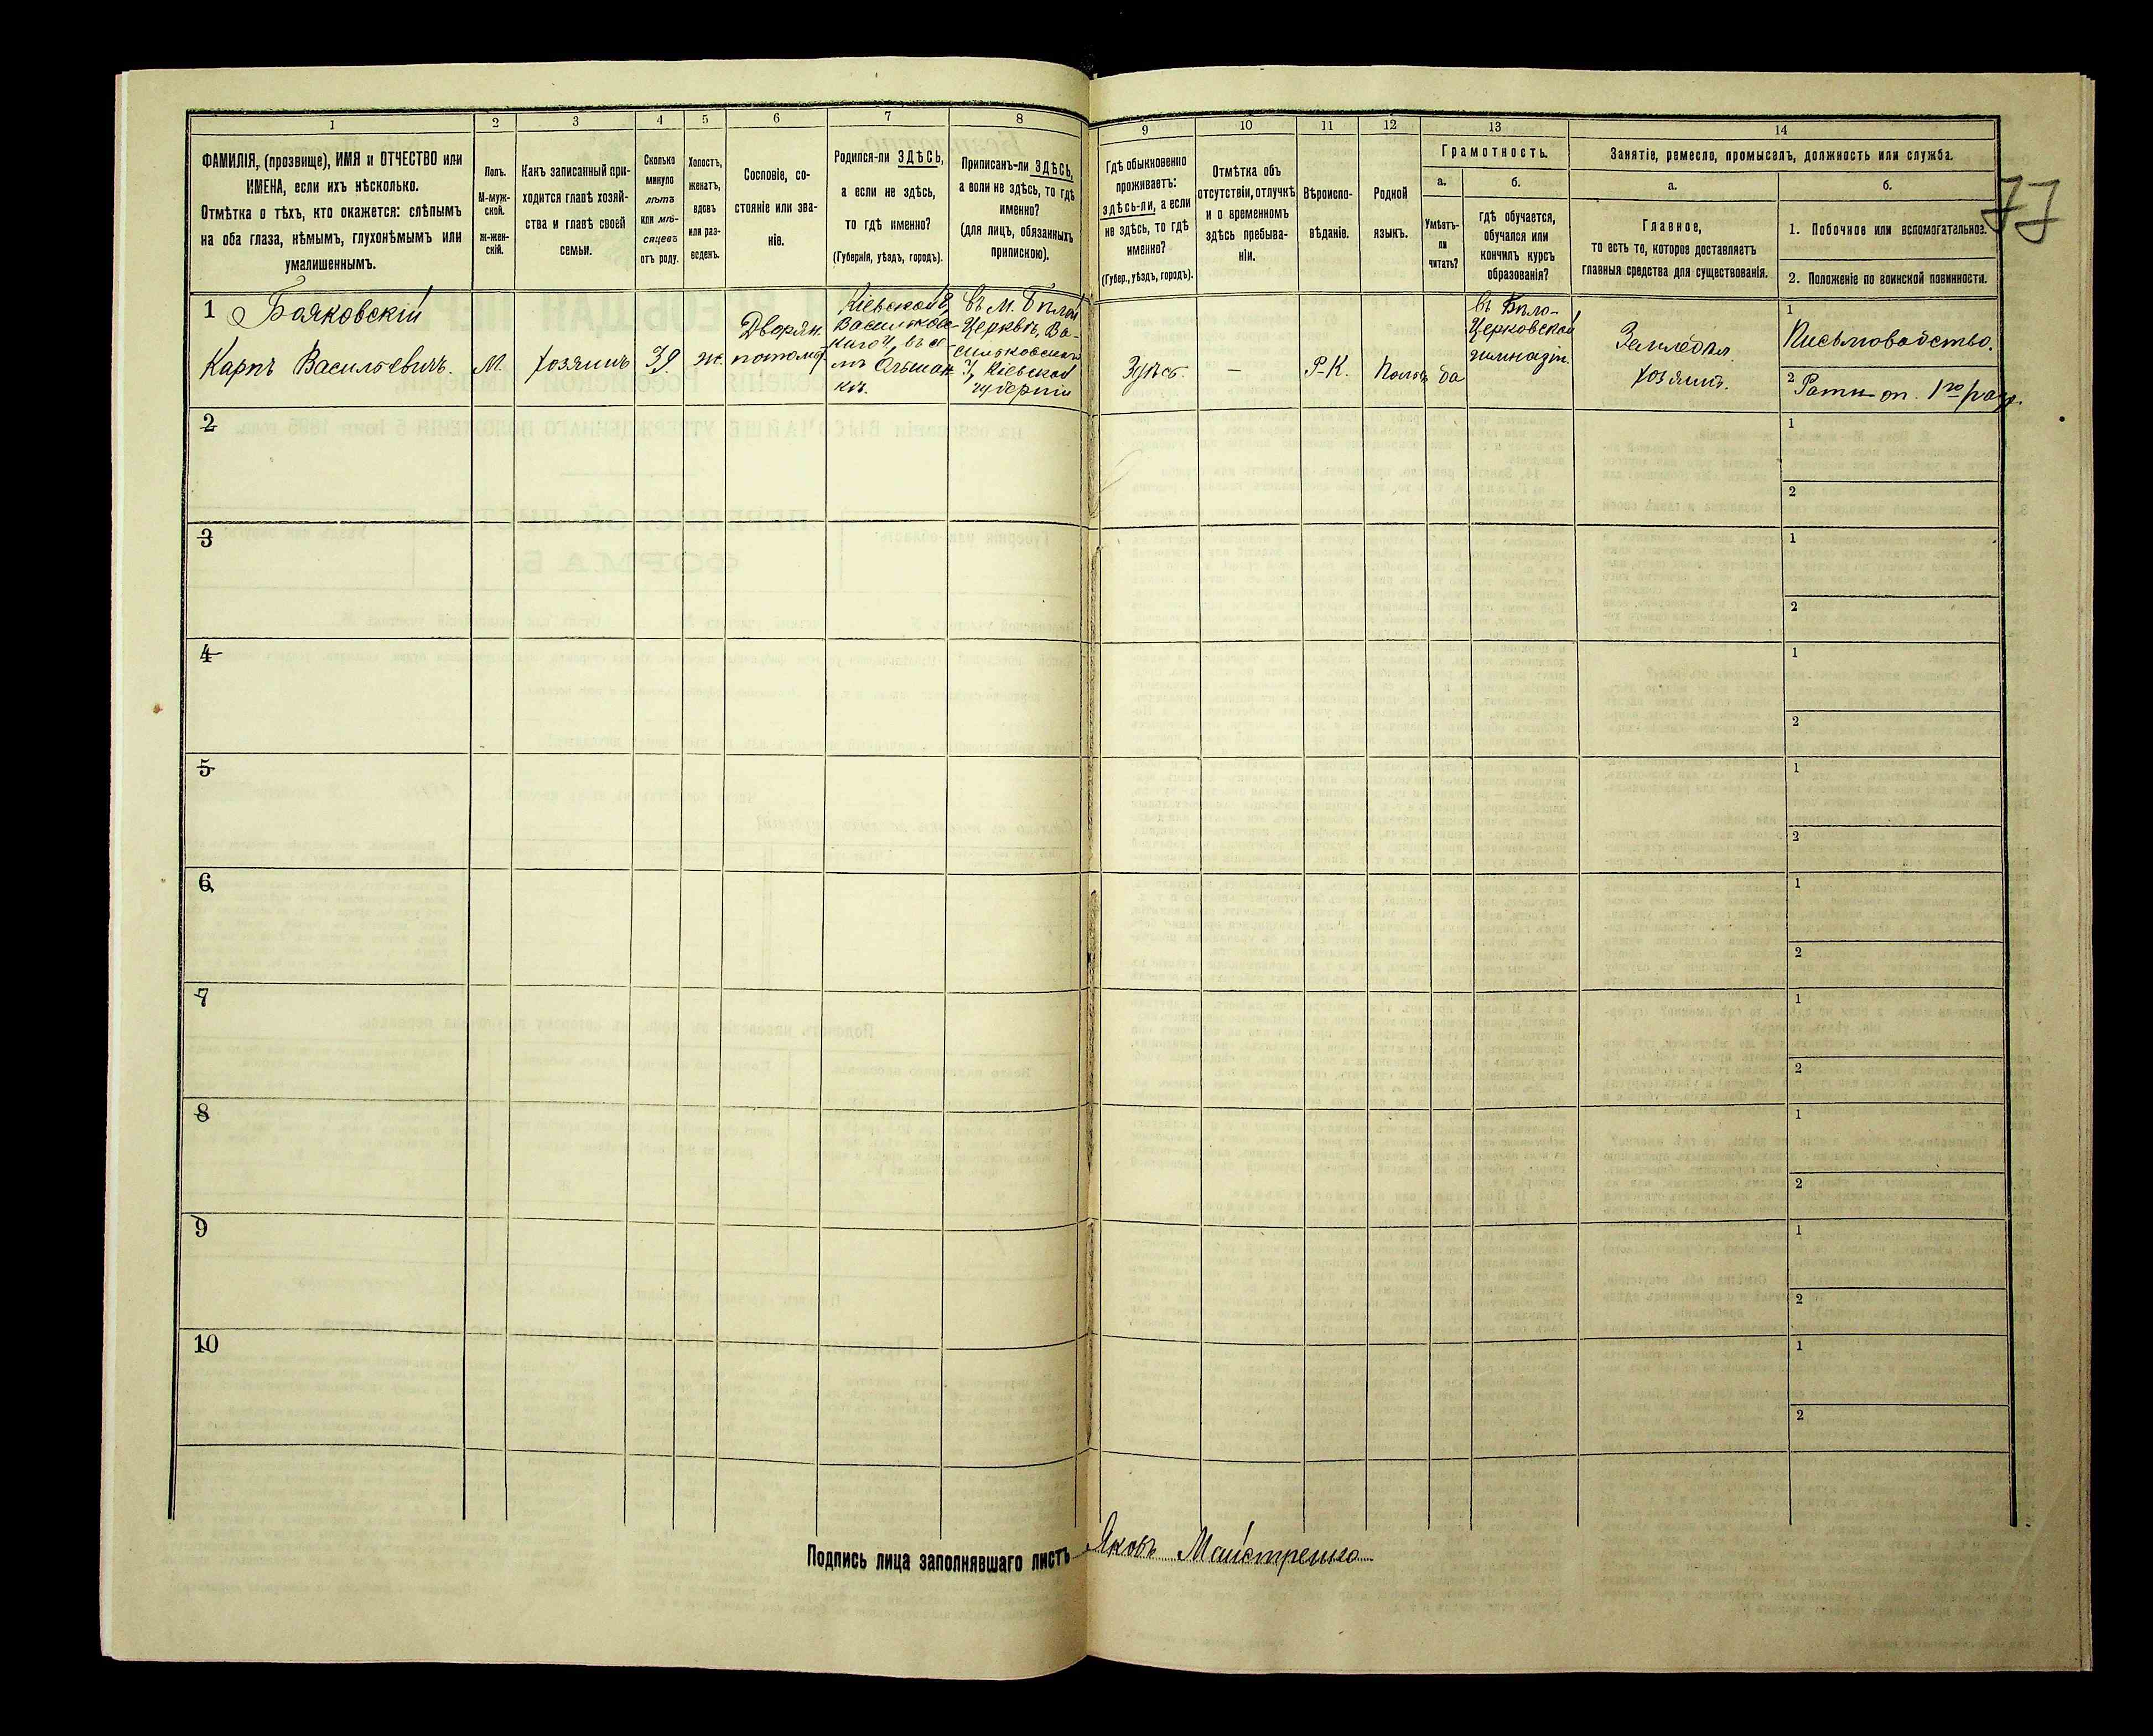 1 2 3 4 5 6 7 8
ФАМИЛІЯ, (прозвище), ИМЯ и ОТЧЕСТВО или
ИМЕНА, если ихъ нѣсколько.
Отмѣтка о тѣхъ, кто окажется: слѣпымъ
на оба глаза, нѣмымъ, глухонѣмымъ или
умалишеннымъ.
Полъ.
М-муж-
ской.
Ж-жен-
скій.
Какъ записанный при-
ходится главѣ хозяй-
ства и главѣ своей
семьи.
Сколько
минуло
лѣтъ
или мѣ-
сяцевъ
отъ роду.
Холостъ,
женатъ,
вдовъ
или раз-
веденъ.
Сословіе, со-
стояніе или зва-
ніе.
Родился-ли ЗДѢСЬ,
а если не здѣсь,
то гдѣ именно?
(Губернія, уѣздъ, городъ).
Приписанъ-ли ЗДѢСЬ,
а если не здѣсь, то гдѣ
именно?
(для лицъ, обязанныхъ
припискою).
9 10 11 12 13 14
Гдѣ обыкновенно
проживаетъ:
здѣсь-ли, а если
не здѣсь, то гдѣ
именно?
(Губер., уѣздъ, городъ).
Отмѣтка объ
отсутствіи, отлучкѣ
и о временномъ
здѣсь пребыва-
ніи.
Вѣроиспо-
вѣданіе.
Родной
языкъ.
Грамотность.
а.
Умѣетъ-
ли
читать?
б.
гдѣ обучается,
обучался или
кончилъ курсъ
образованія?
Занятіе, ремесло, промыселъ, должность или служба.
а.
Главное,
то есть то, которое доставляетъ
главныя средства для существованія.
б.
1. Побочное или вспомогательное.
2. Положеніе по воинской повинности.
77
1 Бояковскій
Карпъ Васильевичъ.
М.
хозяинъ
39
ж.
Дворян.
потом.
Кіевской г.,
Васильков-
въ с-
Ольшан-
кѣ.
Въ М. Бѣлой
Церквѣ, Ва-
сильковскаго
у, Кіевской
губерніи
Здѣсь.
—
Р-К.
Польск.
да
въ Бѣло-
Церковской
гимназіи.
Земледѣл.
хозяинъ.
1
Письмоводство.
2 Ратн. оп. 1го разр.
2
1
2
3
1
2
4
1
2
5
1
2
6
1
2
7
1
2
8
1
2
9
1
2
10
1
2
Подпись лица заполнявшаго листъ Яковъ Майстренко